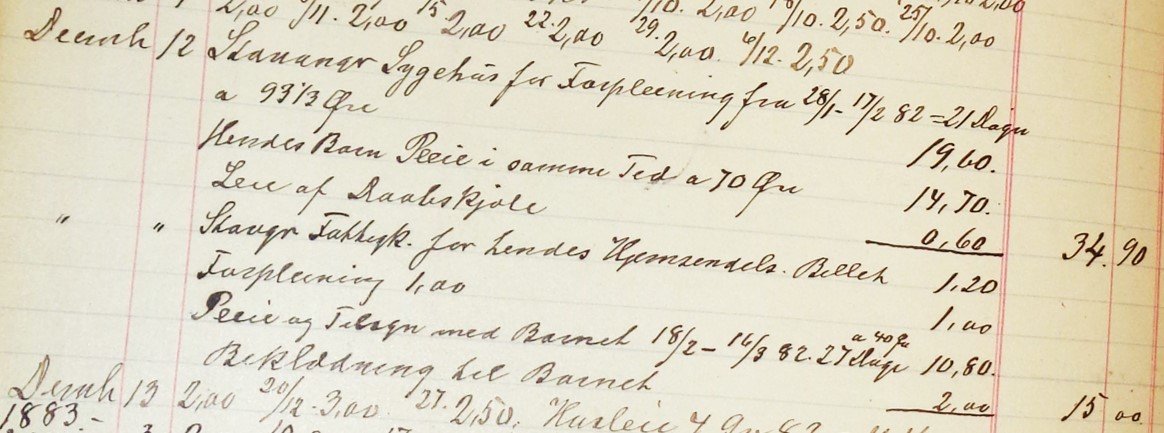 2,00 5/11. 2,00 15 2,00 22. 2,00 29. 2,00. 6/12. 2,50 /10. 2,00 /10. 2,50. 25/10. 2,00
Decmb 12 Stavangr Sygehus for Forpleining fra 28/1 - 17/2 82 = 21 Dage
a 93 1/3 Øre 19,60.
Hendes Barn Pleie i samme Tid a 70 Øre 14,70.
Leie af Daabskjole 0,60 34.90
" " Stavgr Fattigk. for hendes Hjemsendels. Billet 1,20
Forpleining 1,00 1,00
Pleie og Tilsyn med Barnet 18/2 - 16/3 82. 27 Dage a 40 Øre 10,80.
Beklædning til Barnet 2,00 15 00
Decmb 13 2,00 20/12. 3,00 27. 2,50. Husleie
1883.-